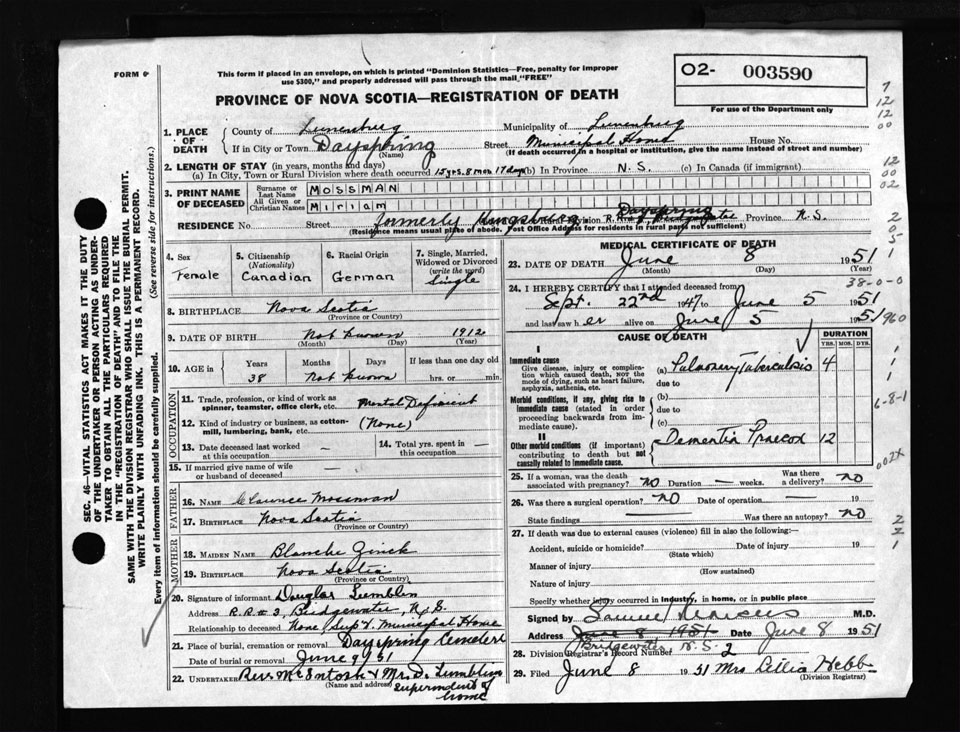 FORM 6
This form if placed in an envelope, on which is printed "Dominion Statistics—Free, penalty for improper
use $300," and properly addressed will pass through the mail "FREE"
PROVINCE OF NOVA SCOTIA—REGISTRATION OF DEATH
O2- 003590
For use of the Department only
SEC. 46—VITAL STATISTICS ACT MAKES IT THE DUTY
OF THE UNDERTAKER OR PERSON ACTING AS UNDER-
TAKER TO OBTAIN ALL THE PARTICULARS REQUIRED
IN THE "REGISTRATION OF DEATH" AND TO FILE THE
SAME WITH THE DIVISION REGISTRAR WHO SHALL ISSUE THE BURIAL PERMIT.
WRITE PLAINLY WITH UNFADING INK. THIS IS A PERMANENT RECORD.
Every item of information should be carefully supplied. (See reverse side for instructions.)
1. PLACE OF DEATH
County of Lunenburg Municipality of Lunenburg
If in City or Town Dayspring Street Municipal Home House No.
(Name) (If death occurred in a hospital or institution, give the name instead of street and number)
2. LENGTH OF STAY (in years, months and days)
(a) In City, Town or Rural Division where death occurred 15 yrs. 8 mon 17 days (b) In Province N.S. (c) In Canada (if immigrant)
3. PRINT NAME OF DECEASED
Surname or Last Name MOSSMAN
All Given or Christian Names Miriam
RESIDENCE No. Street formerly Kingsburg Division Dayspring Province N.S.
(Residence means usual place of abode. Post Office Address for residents in rural parts not sufficient)
4. Sex Female
5. Citizenship (Nationality) Canadian
6. Racial Origin German
7. Single, Married, Widowed or Divorced (write the word) Single
8. BIRTHPLACE Nova Scotia
(Province or Country)
9. DATE OF BIRTH Not known 1912
(Month) (Day) (Year)
10. AGE in Years 38 Months Not known Days If less than one day old hrs. or min.
OCCUPATION
11. Trade, profession, or kind of work as spinner, teamster, office clerk, etc. Mental Deficient
12. Kind of industry or business, as cotton-mill, lumbering, bank, etc. (None)
13. Date deceased last worked at this occupation —
14. Total yrs. spent in this occupation —
15. If married give name of wife or husband of deceased —
FATHER
16. NAME Clarence Mossman
17. BIRTHPLACE Nova Scotia
(Province or Country)
MOTHER
18. MAIDEN NAME Blanche Zinck
19. BIRTHPLACE Nova Scotia
(Province or Country)
20. Signature of informant Douglas Lumblin
Address R.R # 3, Bridgewater, N.S.
Relationship to deceased None / Supt. Municipal Home
21. Place of burial, cremation or removal Dayspring Cemetery
Date of burial or removal June 9/51
22. UNDERTAKER Rev. McIntosh & Mr. D. Lumblin
(Name and address) Superindent of home
MEDICAL CERTIFICATE OF DEATH
23. DATE OF DEATH June 8 1951
(Month) (Day) (Year)
24. I HEREBY CERTIFY that I attended deceased from
Sept. 22nd 1947 to June 5 1951
and last saw her alive on June 5 1951
CAUSE OF DEATH
DURATION
YRS. MOS. DYS.
I
Immediate cause
Give disease, injury or complication which caused death, not the mode of dying, such as heart failure, asphyxia, asthenia, etc.
(a) Pulmonary Tuberculosis 4
due to
Morbid conditions, if any, giving rise to immediate cause (stated in order proceeding backwards from immediate cause).
(b)
due to
(c)
II
Other morbid conditions (if important) contributing to death but not causally related to immediate cause.
Dementia Praecox 12
25. If a woman, was the death associated with pregnancy? NO Duration — weeks. Was there a delivery? NO
26. Was there a surgical operation? NO Date of operation — 19
State findings Was there an autopsy? NO
27. If death was due to external causes (violence) fill in also the following:
Accident, suicide or homicide? Date of injury 19
(State which)
Manner of injury
(How sustained)
Nature of injury
Specify whether injury occurred in industry, in home, or in public place
Signed by M.D.
Address June 8 1951 Date June 8 1951
Bridgewater, N.S.
28. Division Registrar's Record Number 2
29. Filed June 8 1951 Mrs Lellia Webb
(Division Registrar)
7
12
12
00
12
00
02
2
0
5
1
38-0-0
960
1
1
1
6-8-1
002x
2
2
1